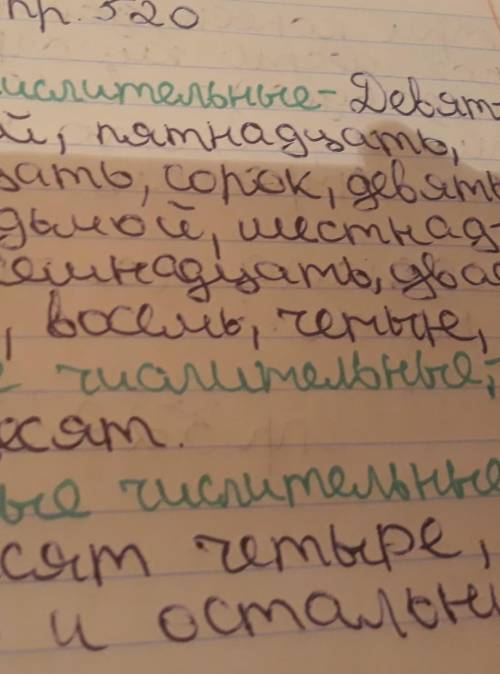 пр. 520
ислительные- Девят-
ой, пятнадцать,
цать, сорок, девять
дьмой, шестнад-
семнадцать, два
, восемь, четыне,
е числительные,
есят.
ые числительные
сят четыре,
и остальн